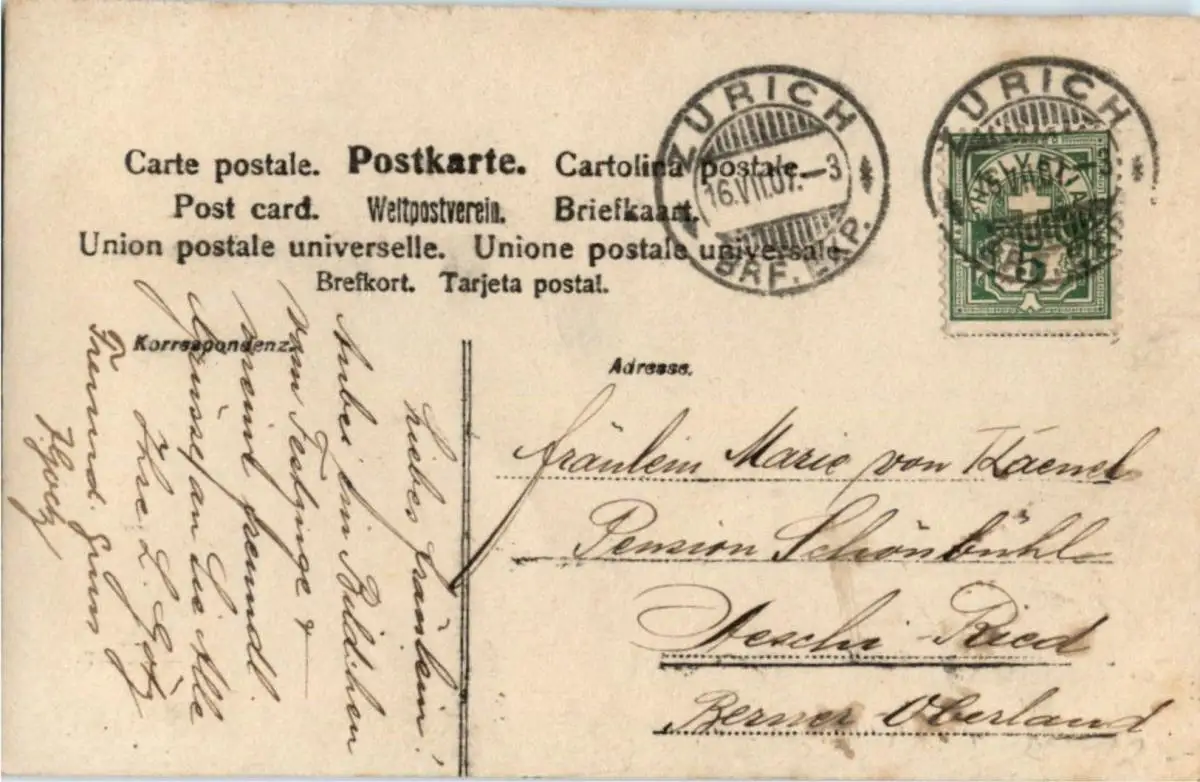 Carte postale. Postkarte. Cartolina postale.
Post card. Weltpostverein. Briefkaart.
Union postale universelle. Unione postale universale
Brefkort. Tarjeta postal.
ZÜRICH
16.VII.07.–3
BRF. EXP.
ZÜRICH
HELVETIA
5
Korrespondenz.
Liebes Fräulein!
Anbei ein Bildchen
vom Festzuge &
meine freundl.
Grüsse an Sie Alle
Ihre L. Götz
Freundl. Gruss
Götz
Adresse.
Fräulein Marie von Kaenel
Pension Schönbühl
Aeschi-Ried
Berner Oberland